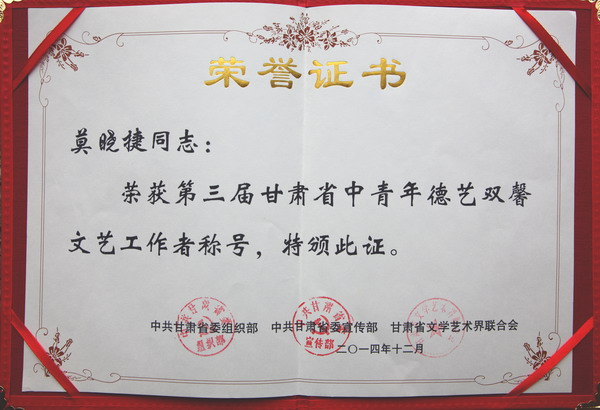 荣誉证书
莫晓捷同志：
荣获第三届甘肃省中青年德艺双馨
文艺工作者称号，特颁此证。
中共甘肃省委组织部 中共甘肃省委宣传部 甘肃省文学艺术界联合会
二〇一四年十二月
组织部
宣传部